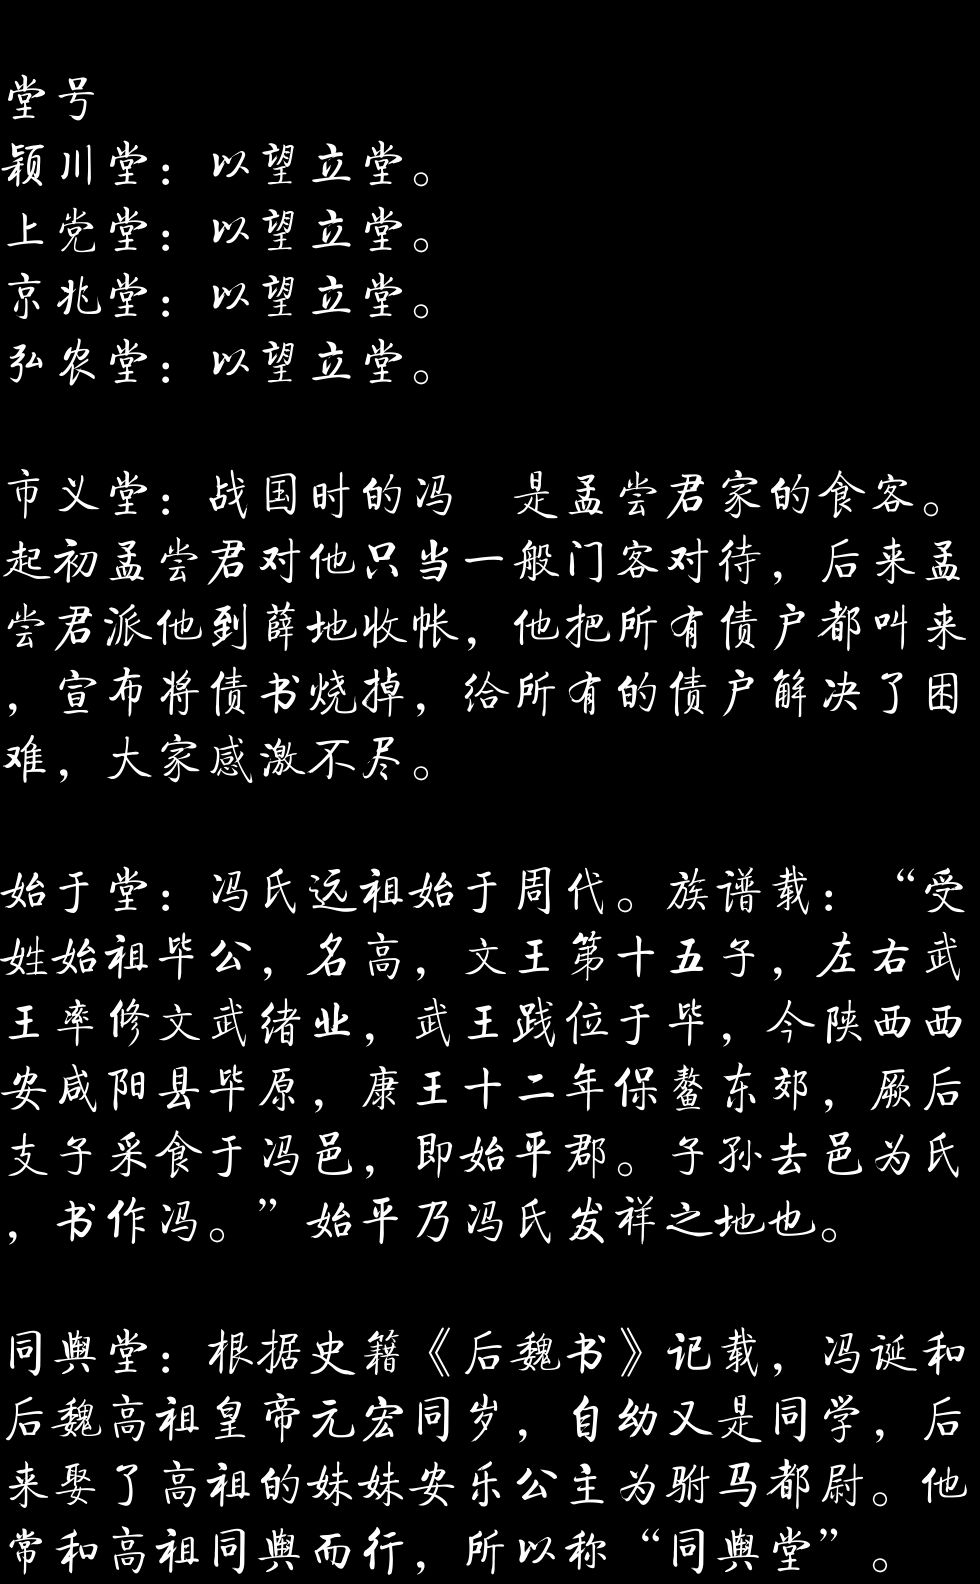 堂号
颖川堂：以望立堂。
上党堂：以望立堂。
京兆堂：以望立堂。
弘农堂：以望立堂。
市义堂：战国时的冯　是孟尝君家的食客。
起初孟尝君对他只当一般门客对待，后来孟
尝君派他到薛地收帐，他把所有债户都叫来
，宣布将债书烧掉，给所有的债户解决了困
难，大家感激不尽。
始于堂：冯氏远祖始于周代。族谱载：“受
姓始祖毕公，名高，文王第十五子，左右武
王率修文武绪业，武王践位于毕，今陕西西
安咸阳县毕原，康王十二年保鳌东郊，厥后
支子采食于冯邑，即始平郡。子孙去邑为氏
，书作冯。”始平乃冯氏发祥之地也。
同舆堂：根据史籍《后魏书》记载，冯诞和
后魏高祖皇帝元宏同岁，自幼又是同学，后
来娶了高祖的妹妹安乐公主为驸马都尉。他
常和高祖同舆而行，所以称“同舆堂”。